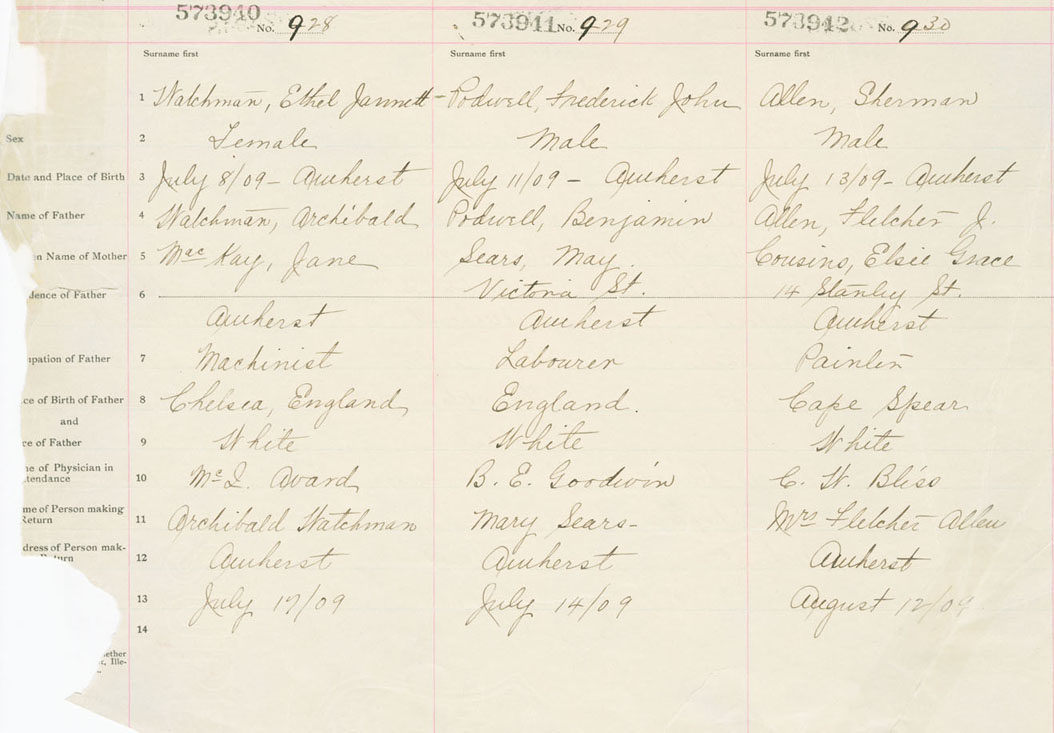 573940 573941 573942
No. 928 No. 929 No. 930
Surname first Surname first Surname first
1 Watchman, Ethel Jannett - Podwell, Frederick John Allen, Sherman
Sex 2 Female Male Male
Date and Place of Birth 3 July 8/09 - Amherst July 11/09 - Amherst July 13/09 - Amherst
Name of Father 4 Watchman, Archibald Podwell, Benjamin Allen, Fletcher J.
n Name of Mother 5 MacKay, Jane Sears, May. Cousins, Elsie Grace
dence of Father 6 Victoria St. 14 Stanley St.
Amherst Amherst Amherst
upation of Father 7 Machinist Labourer Painter
ce of Birth of Father 8 Chelsea, England England. Cape Spear
and
ce of Father 9 White White White
ne of Physician in
tendance 10 McI. Avard B. E. Goodwin C. W. Bliss
me of Person making
Return 11 Archibald Watchman Mary Sears - Mrs Fletcher Allen
dress of Person mak-
Return 12 Amherst Amherst Amherst
13 July 17/09 July 14/09 August 12/09
14
ether
r, Ille-